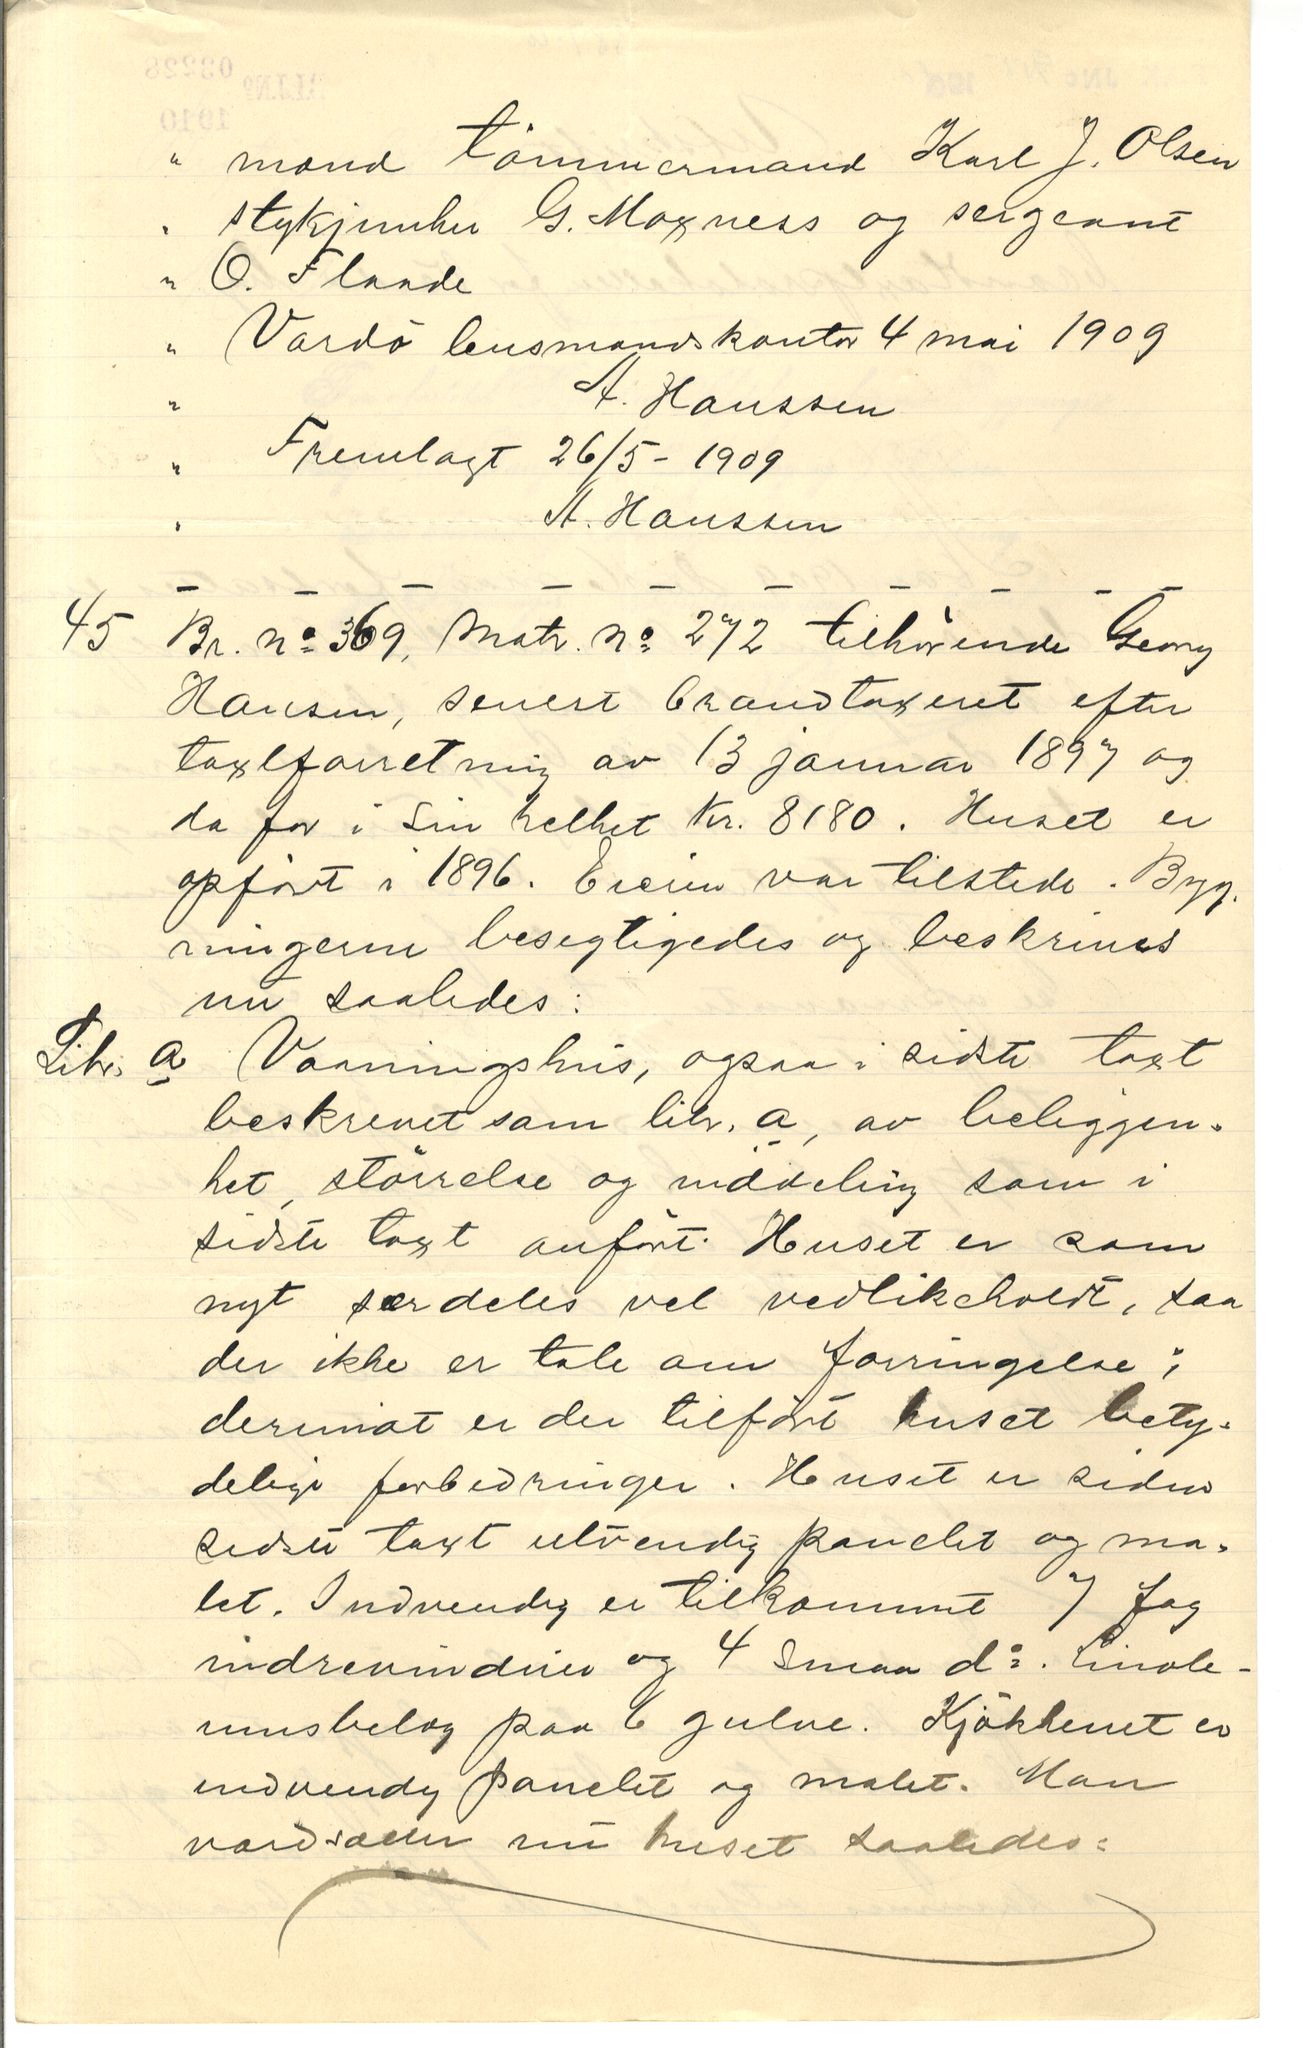 " mand tömmermand Karl J. Olsen
" stykjunker G. Moxness og sergeant
" O. Flaade
" Vardö lensmandskontor 4 mai 1909
" A. Hanssen
" Fremlagt 26/5 - 1909
" A. Hanssen
45 Br. nº 369, Matr. nº 272 tilhörende Georg
Hansen, senest brandtaxeret efter
taxtforretning av 13 januar 1897 og
da for i sin helhet Kr. 8180. Huset er
opfört i 1896. Eieren var tilstede. Byg-
ningerne besegtigedes og beskrives
nu saaledes:
Litr. a Vaaningshus, ogsaa i sidste taxt
beskrevet som litr. a, av beliggen-
het, störrelse og inddeling som i
sidste taxt anfört. Huset er som
nyt særdeles vel vedlikeholdt, saa
der ikke er tale om forringelse;
derimot er der tilfört huset bety-
delige forbedringer. Huset er siden
sidste taxt utvendig panelet og ma-
let. Indvendig er tilkommet 7 fag
indrevinduer og 4 smaa dº. Linole-
umsbelag paa 6 gulve. Kjökkenet er
indvendig panelet og malet. Man
værdsætter nu huset saaledes:
03228
1910